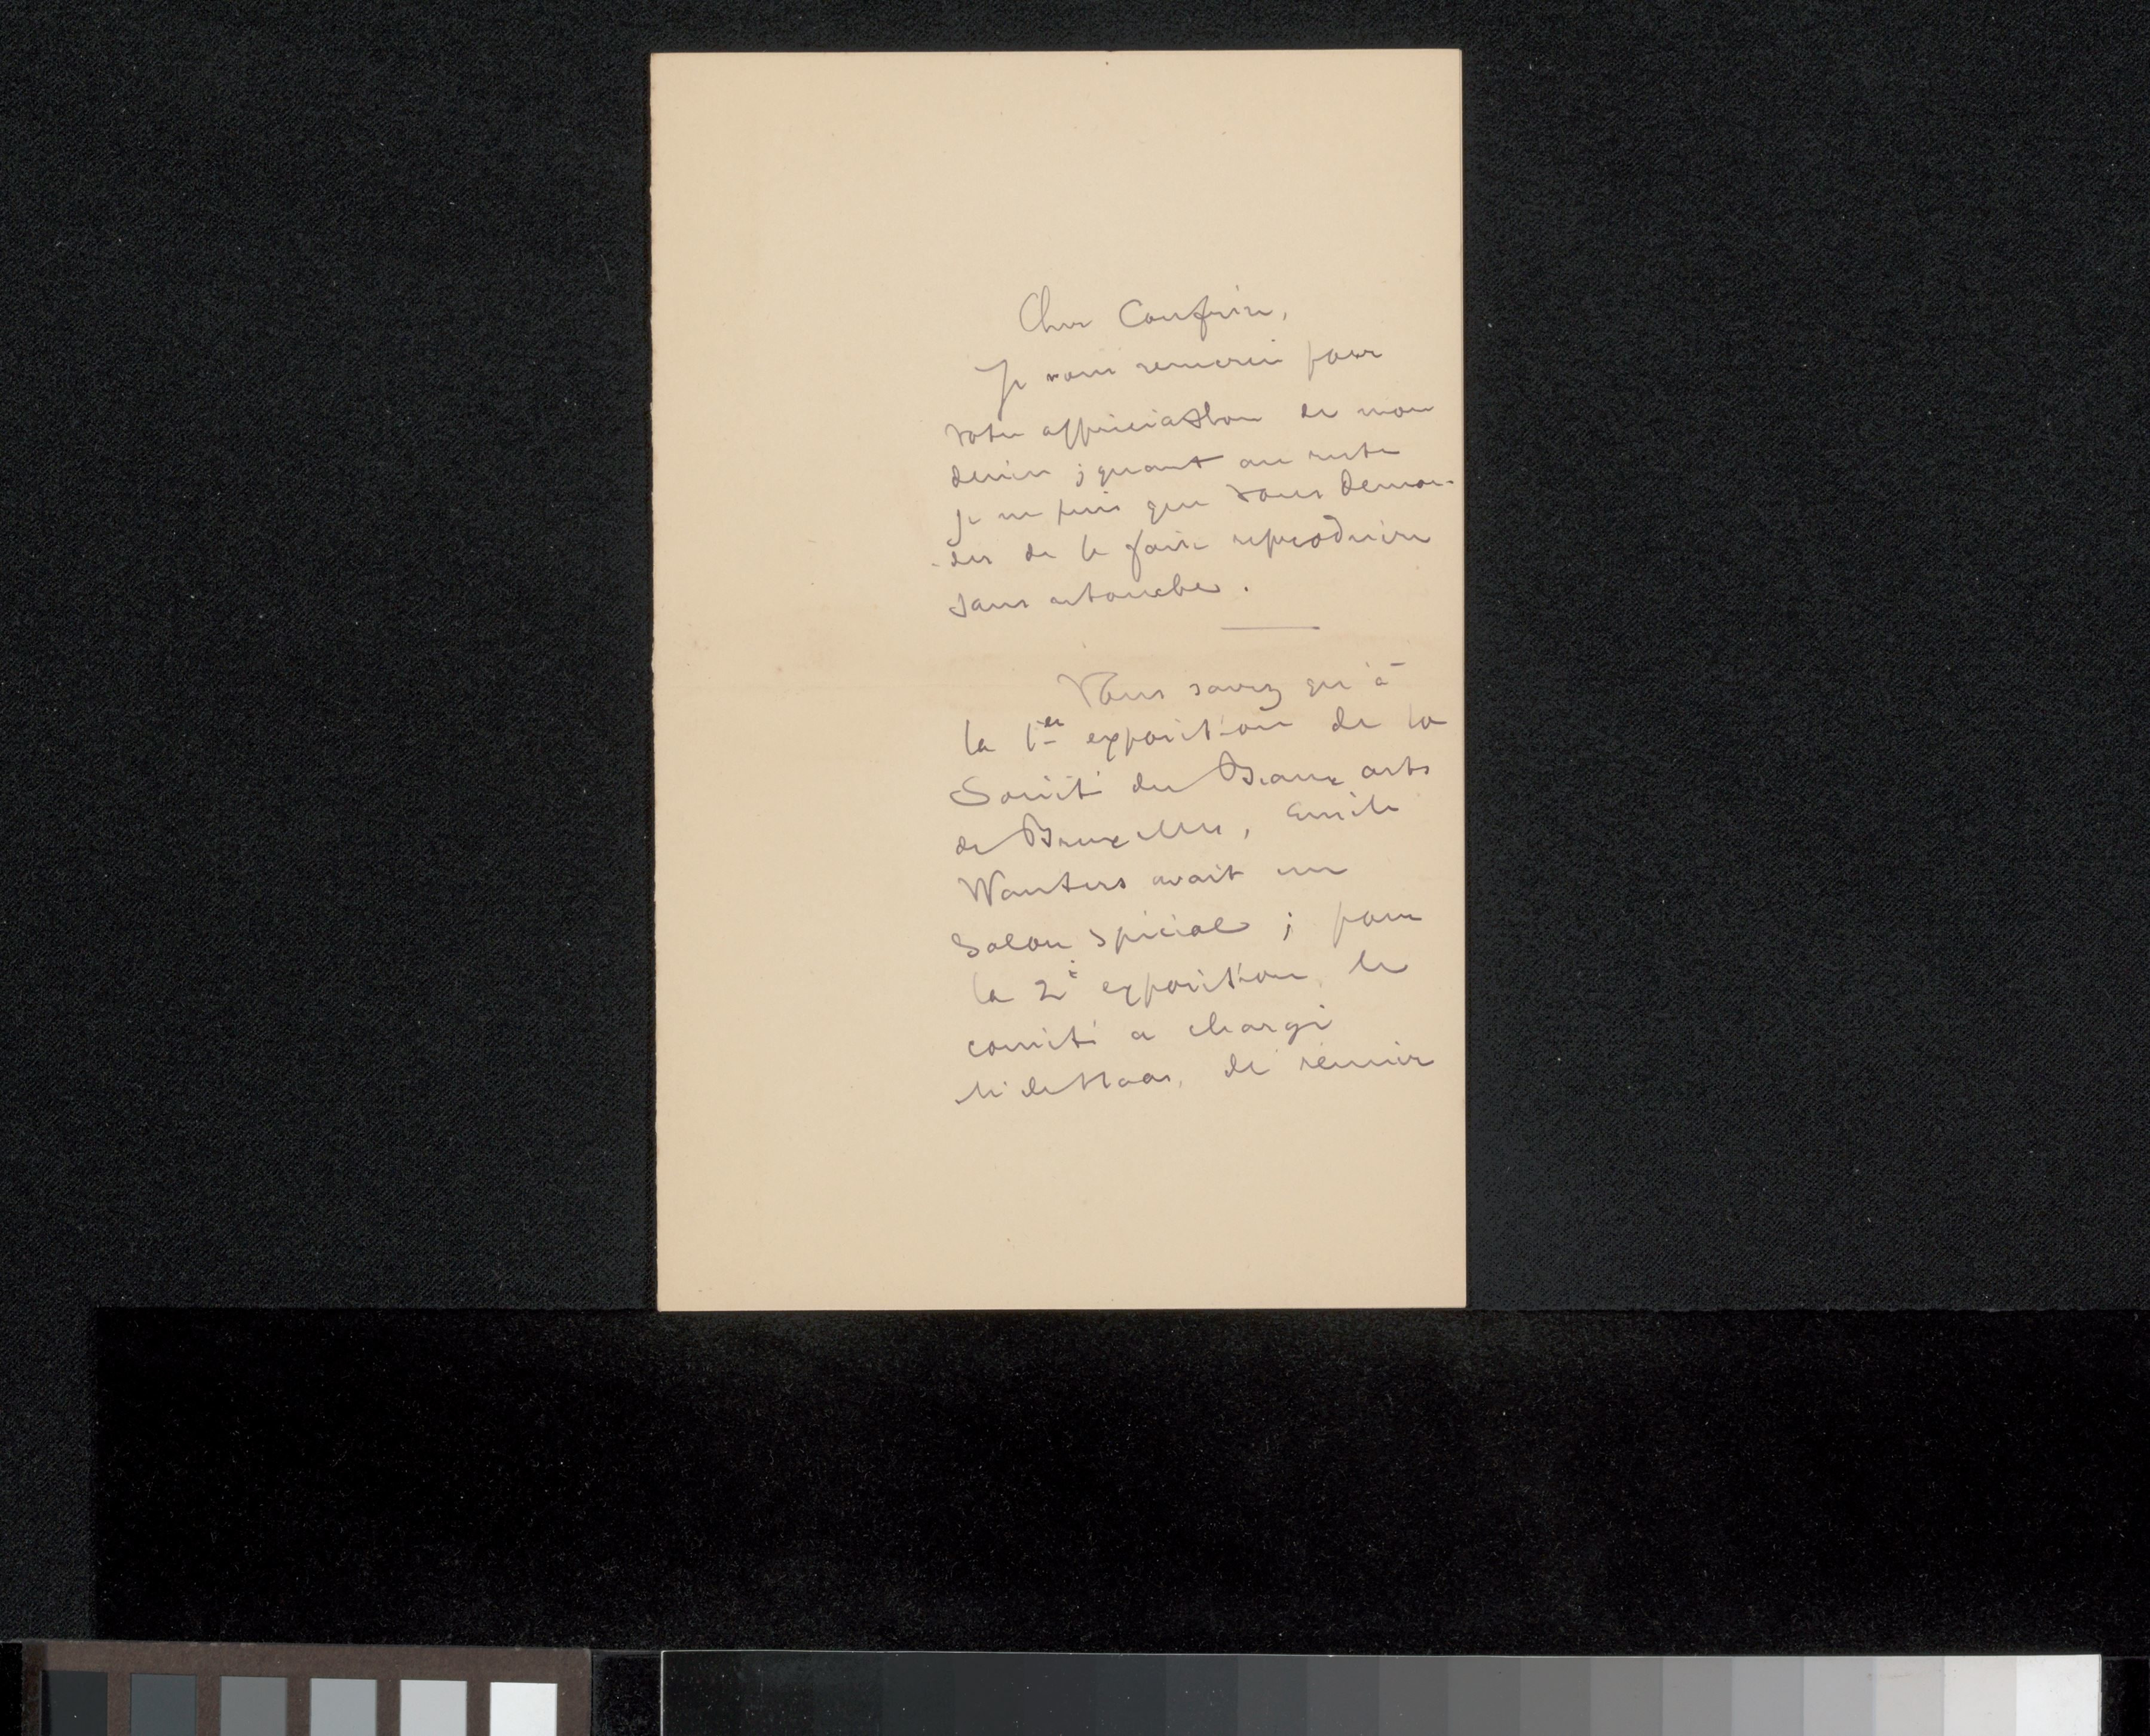 Cher Confrère,
Je vous remercie pour
votre appréciation de mon
dessin ; quant au reste
je ne puis que vous deman-
-der de le faire reproduire
sans retouches.
Vous savez qu'à
la 1er exposition de la
Société des Beaux arts
de Bruxelles, Emile
Wauters avait un
Salon spécial ; pour
la 2e exposition le
comité a chargé
de réunir